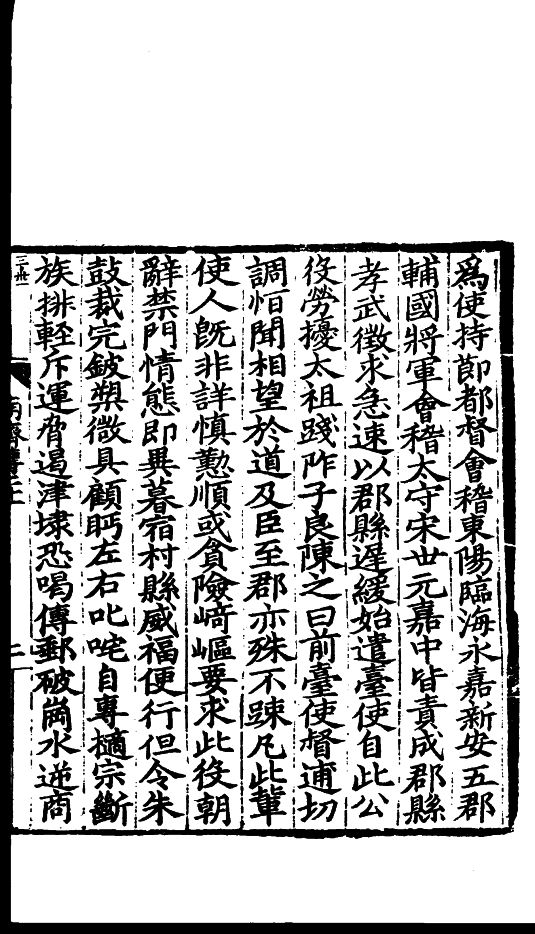 為使持節都督會稽東陽臨海永嘉新安五郡
輔國將軍會稽太守宋世元嘉中皆責成郡縣
孝武徵求急速以郡縣遲緩始遣臺使自此公
役勞擾太祖踐阼子良陳之曰前臺使督逋切
調恒聞相望於道及臣至郡亦殊不踈凡此輩
使人旣非詳慎懃順或貪險﨑嶇要求此役朝
辭禁門情態即異暮宿村縣威福便行但令朱
鼓裁完鈹槊微具顧眄左右叱咤自專擿宗斷
族排輕斥運脅遏津埭恐喝傳郵破崗水逆商
二